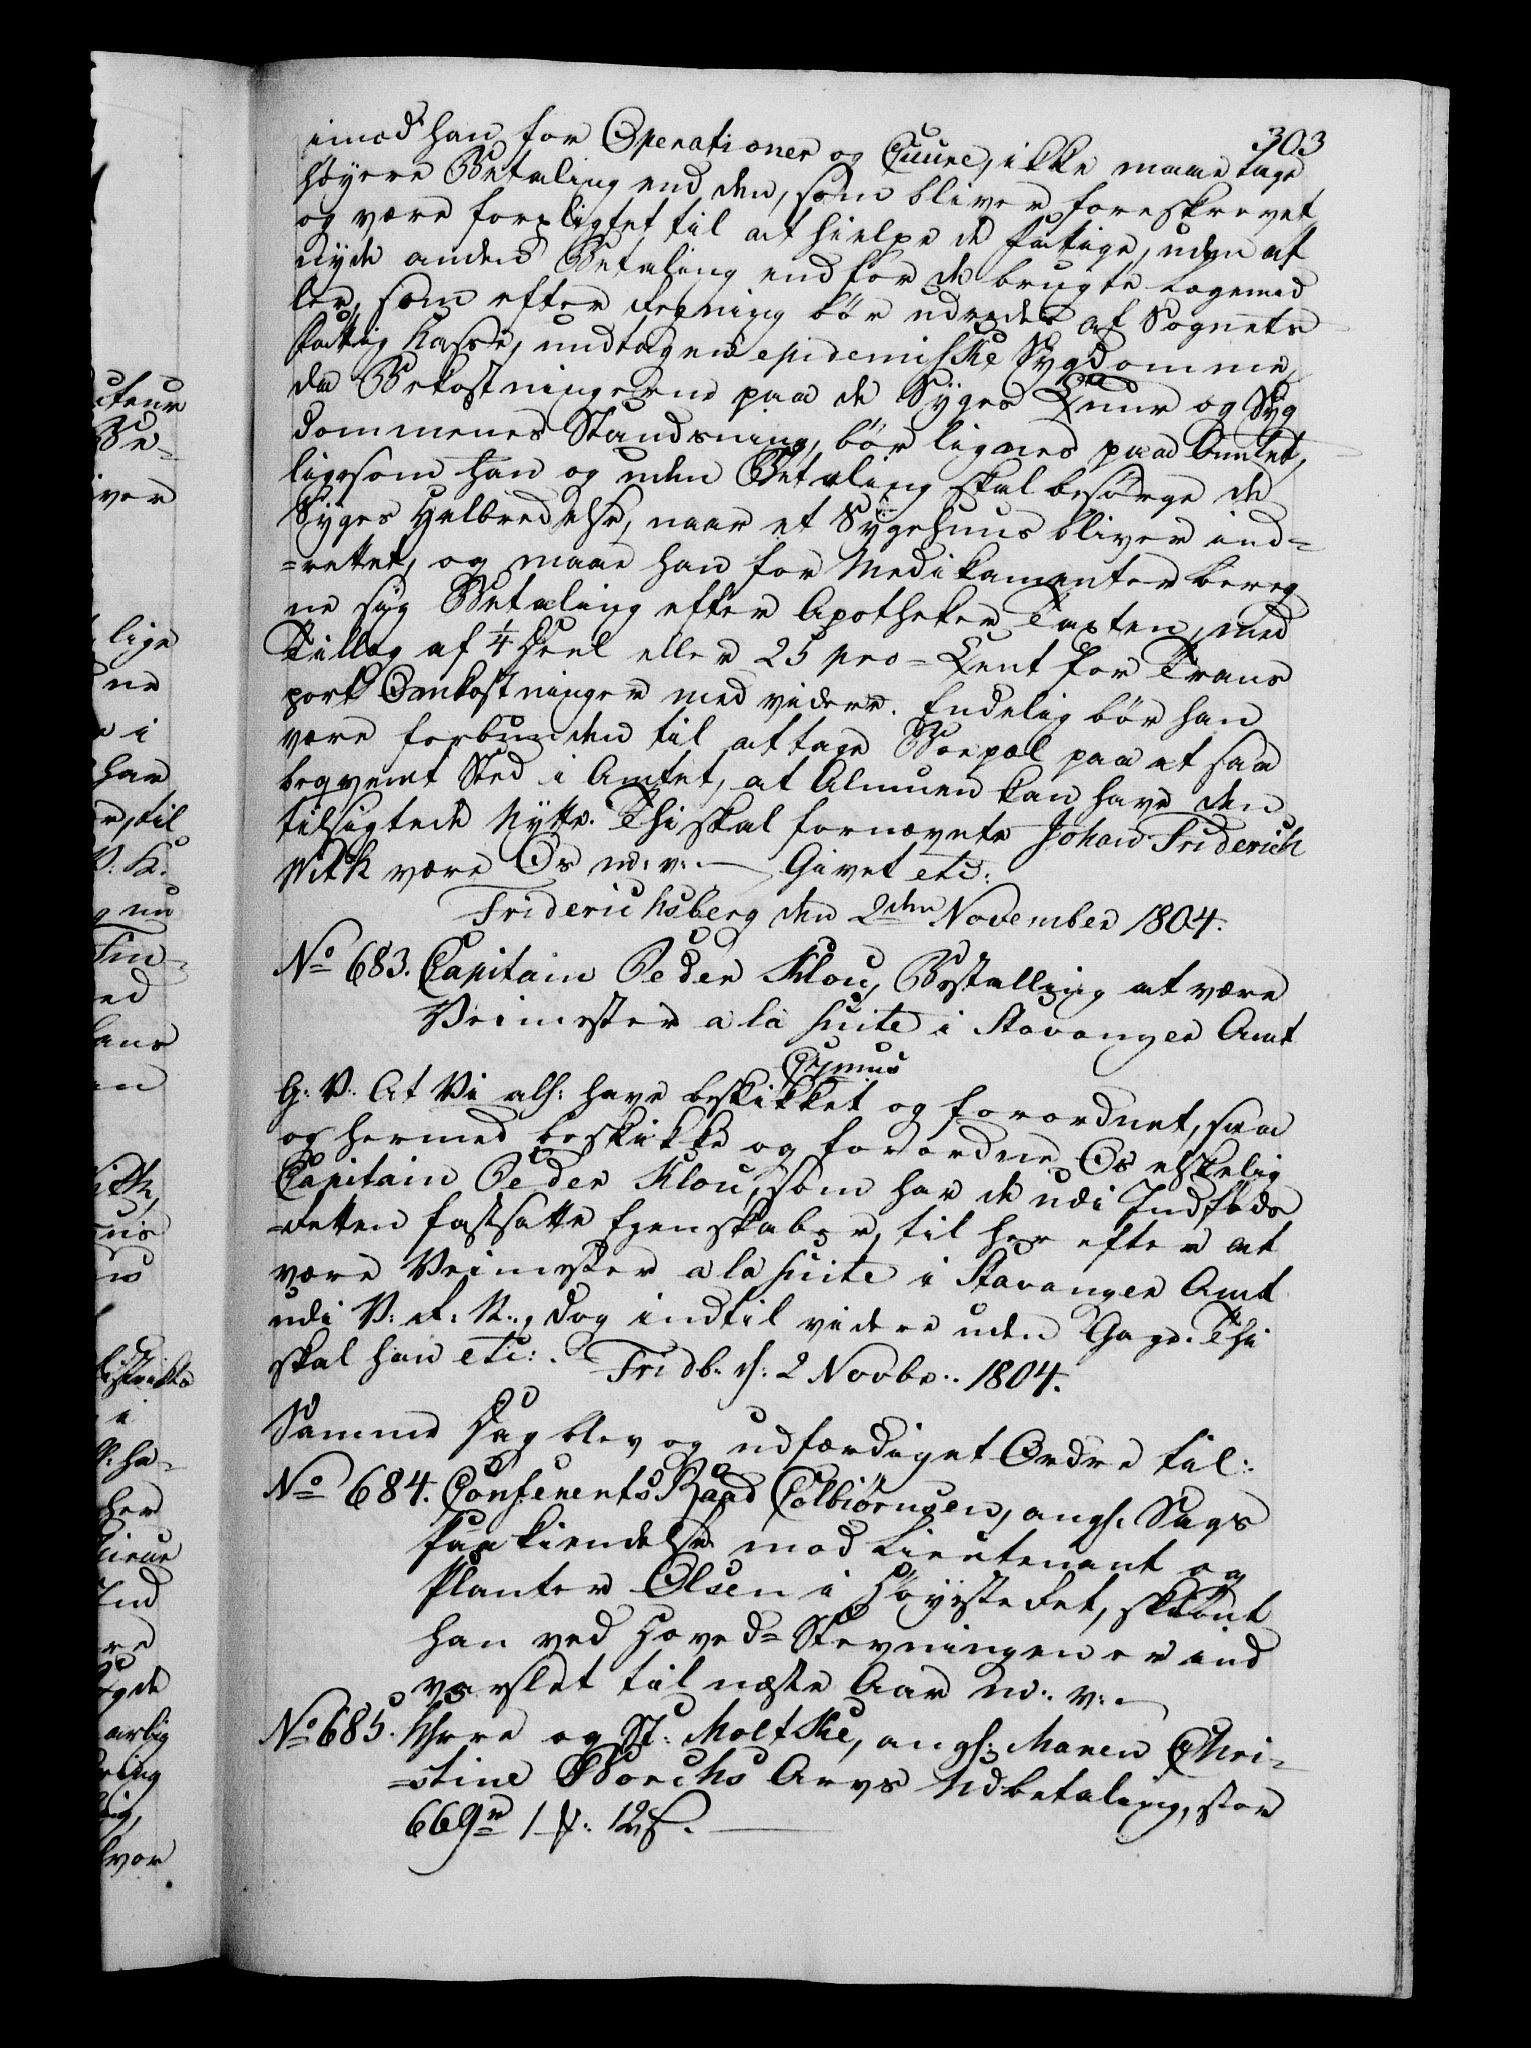 303
imod han for Operationer og Cuure, ikke maae tage
høyere Betaling end den, som bliver foreskrevet
og være forpligtet til at hielpe de fattige, uden at
nyde anden Betaling end for de brugte Lægemid
ler, som efter Regning bør udredes af Sognets
Fattig Kasse, undtagen epidemiske Sygdomme,
da Bekostningerne paa de Syges Cuur og Syg
dommenes Standsning, bør lignes paa Amtet,
ligesom han og uden Betaling skal besørge de
Syges Helbredelse, naar et Sygehuus bliver ind-
=rettet, og maae han for Medikamenter bereg
ne sig Betaling efter Apotheker Taxten, med
Tillæg af 1/4 Deel eller 25 pro=Cent for Trans
port Omkostninger med videre. Endelig bør han
være forbunden til at tage Boepæl paa et saa
beqvemt Sted i Amtet, at Almuen kan have den
tilsigtede Nytte. Thi skal fornævnte Johan Friderich
Witk være Os m: v: — Givet etc:
Friderichsberg den 2den November 1804.
No 683. Capitain Peder Klou, Bestalling at være
Veimester a la suite i Stavanger Amt
G: V: At Vi als: have beskikket og forordnet, saa
og hermed beskikke og forordne Os elskelig
Capitain Peder Klou, som har de udi Indføds
=Retten fastsatte Egenskaber, til her efter at
være Veimester a la suite i Stavanger Amt
udi V: R: N:, dog indtil videre uden Gage. Thi
skal han etc: . Fridb. S: 2 Novbr.. 1804.
Samme Dag blev og udfærdiget Ordre til:
No 684. Conferents Raad Colbiørnsen, angl. Sags
Paakiendelse mod Lieutenant og
Planter Olsen i Høyesteret, skiønt
han ved Hoved=Stevningen er ind
varslet til næste Aar m: v: —
No 685. Wære og St: Moltke, angl: Maren Chri-
=stine Borchs Arvs Udbetaling, stor
669 r 1 ß: 12 ß. —